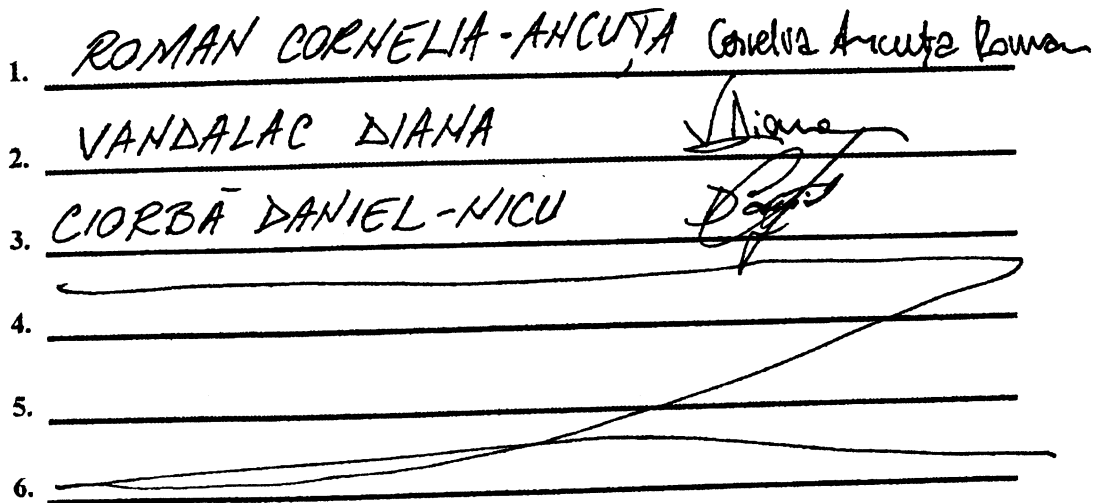 1. ROMAN CORNELIA-ANCUȚA Cornelia Ancuța Roman
2. VANDALAC DIANA VDiana
3. CIORBĂ DANIEL-NICU
4.
5.
6.